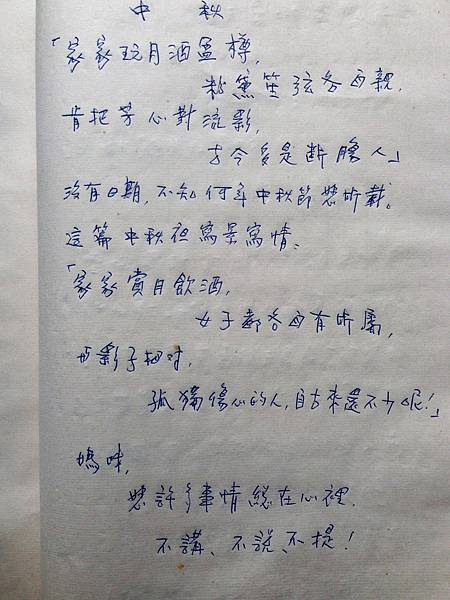 中秋
「家家玩月酒盈樽,
粉黛笙弦各自親,
肯把芳心對流影,
古今多是斷腸人」
沒有日期,不知何年中秋節 所載。
這篇中秋夜寫景寫情:
「家家賞月飲酒,
女子都各自有所屬,
與影子相对,
孤獨傷心的人,自古來還不少呢!」
媽咪,
許多事情總在心裡.
不講、不說、不提!